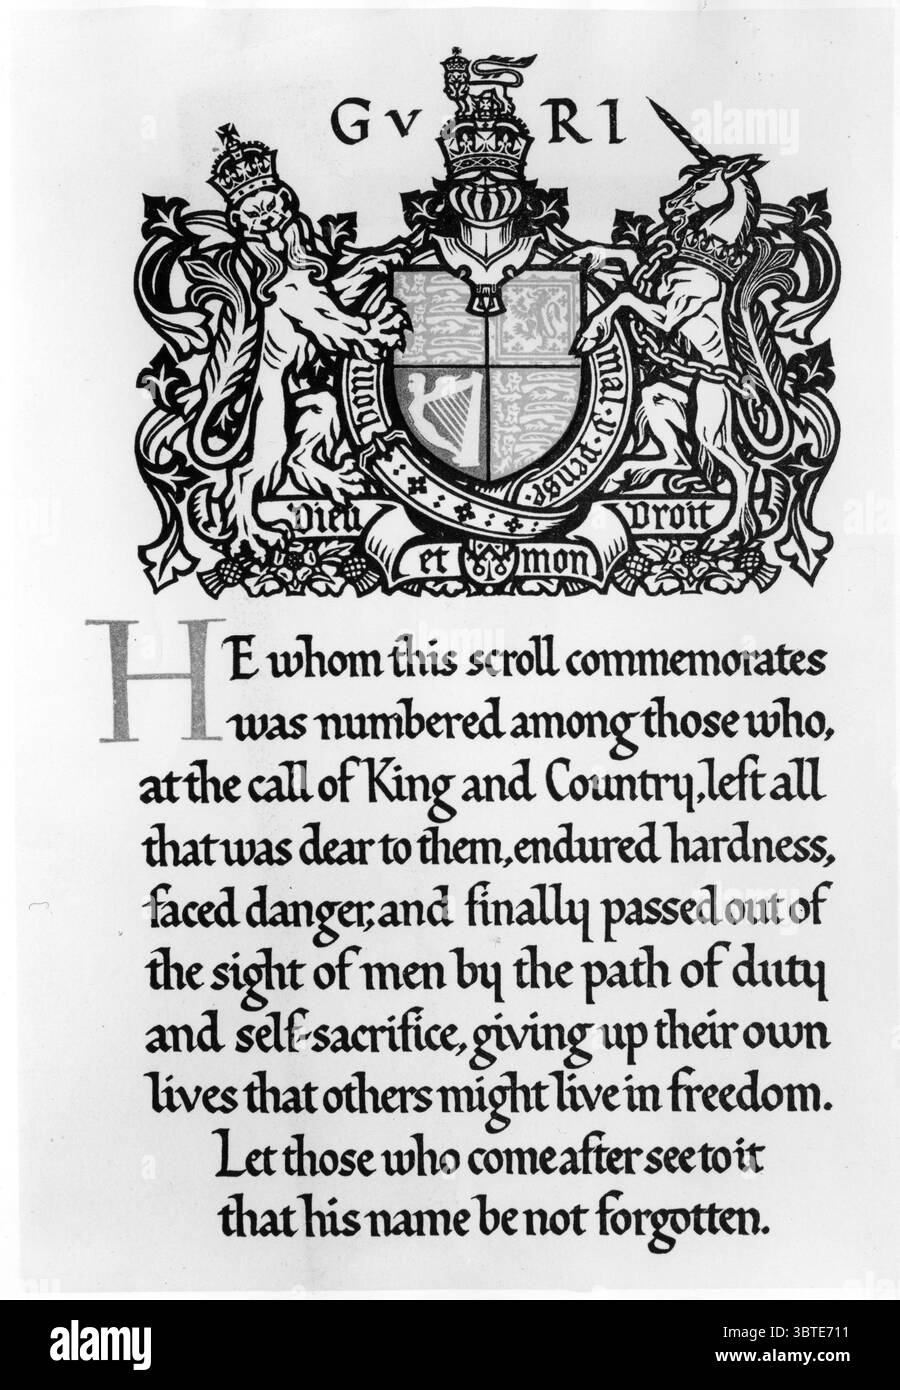 GV RI
honi
mal·y·pense·
Dieu et mon Droit
HE whom this scroll commemorates
was numbered among those who,
at the call of King and Country, left all
that was dear to them, endured hardness,
faced danger, and finally passed out of
the sight of men by the path of duty
and self-sacrifice, giving up their own
lives that others might live in freedom.
Let those who come after see to it
that his name be not forgotten.
alamy
Image ID: 3BTE711
www.alamy.com